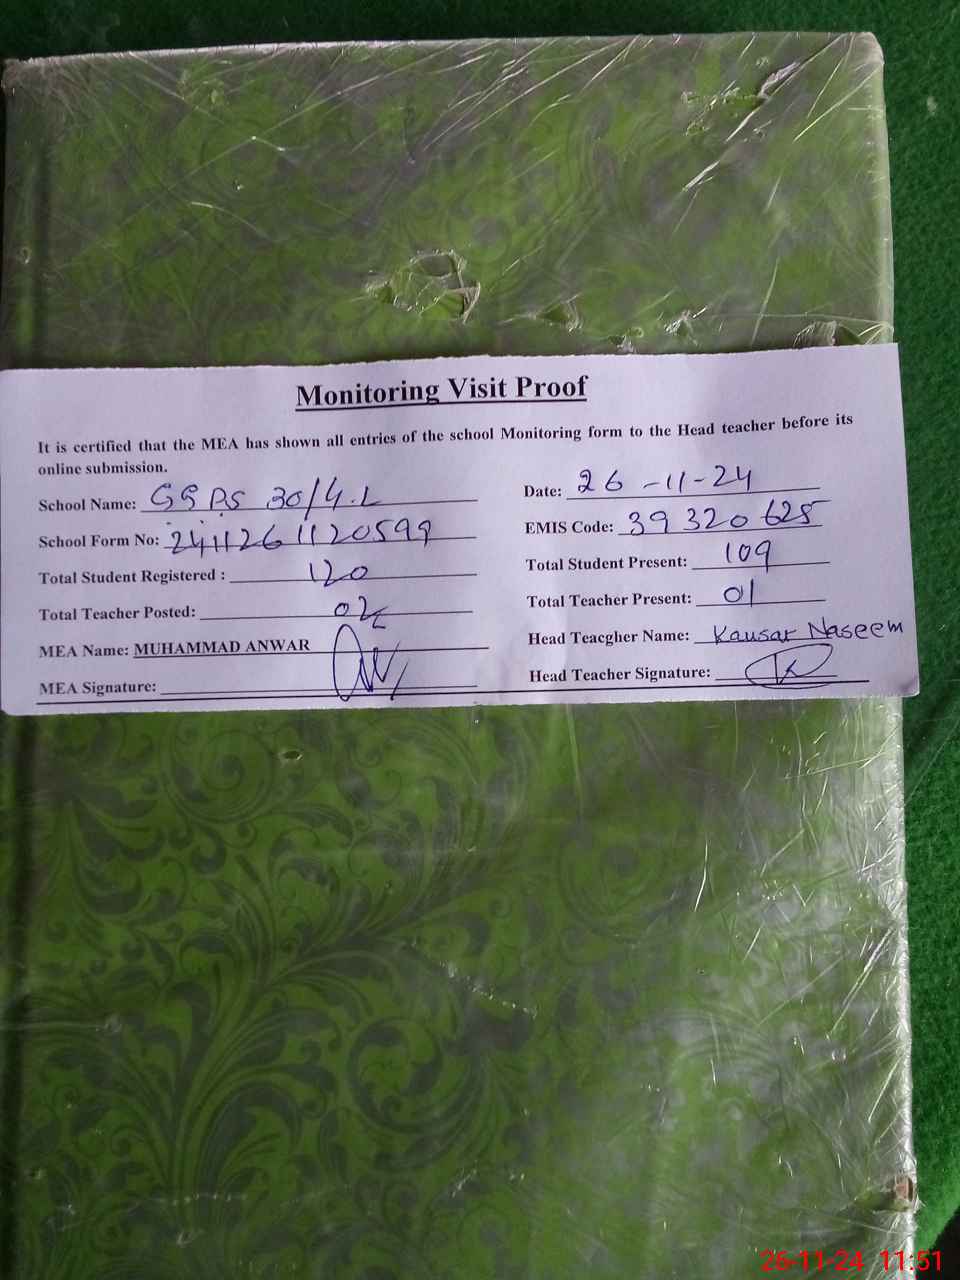 Monitoring Visit Proof
It is certified that the MEA has shown all entries of the school Monitoring form to the Head teacher before its
online submission.
School Name: GGPS 30/4.L
Date: 26-11-24
School Form No: 2411261120599
EMIS Code: 39320625
Total Student Registered : 120
Total Student Present: 109
Total Teacher Posted: 02
Total Teacher Present: 01
MEA Name: MUHAMMAD ANWAR
Head Teacgher Name: Kausar Naseem
MEA Signature:
Head Teacher Signature:
26-11-24 11:51